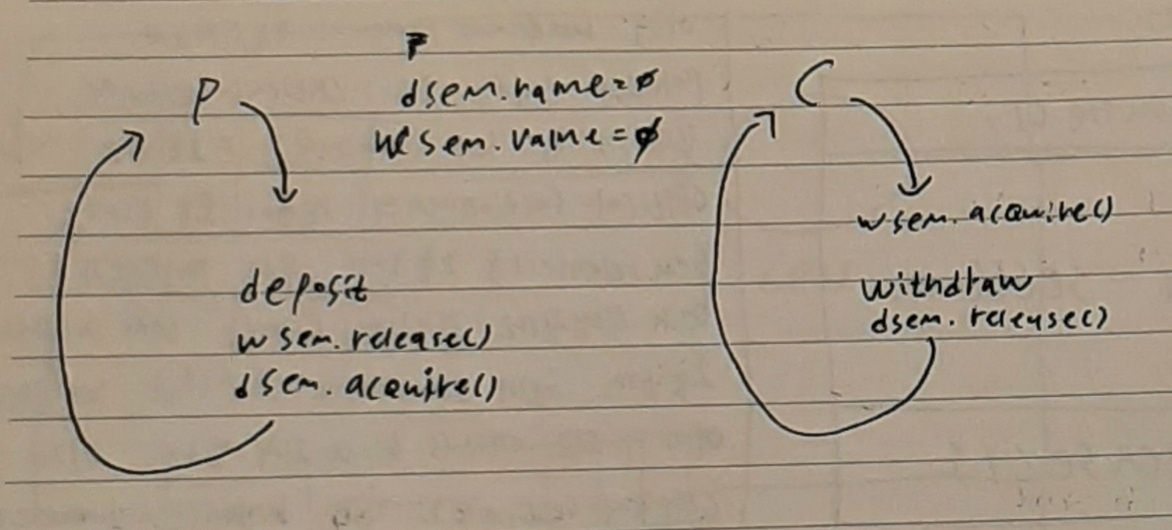 P
dsem.name=0
wsem.value=0
deposit
wsem.release()
dsem.acquire()
C
wsem.acquire()
withdraw
dsem.release()